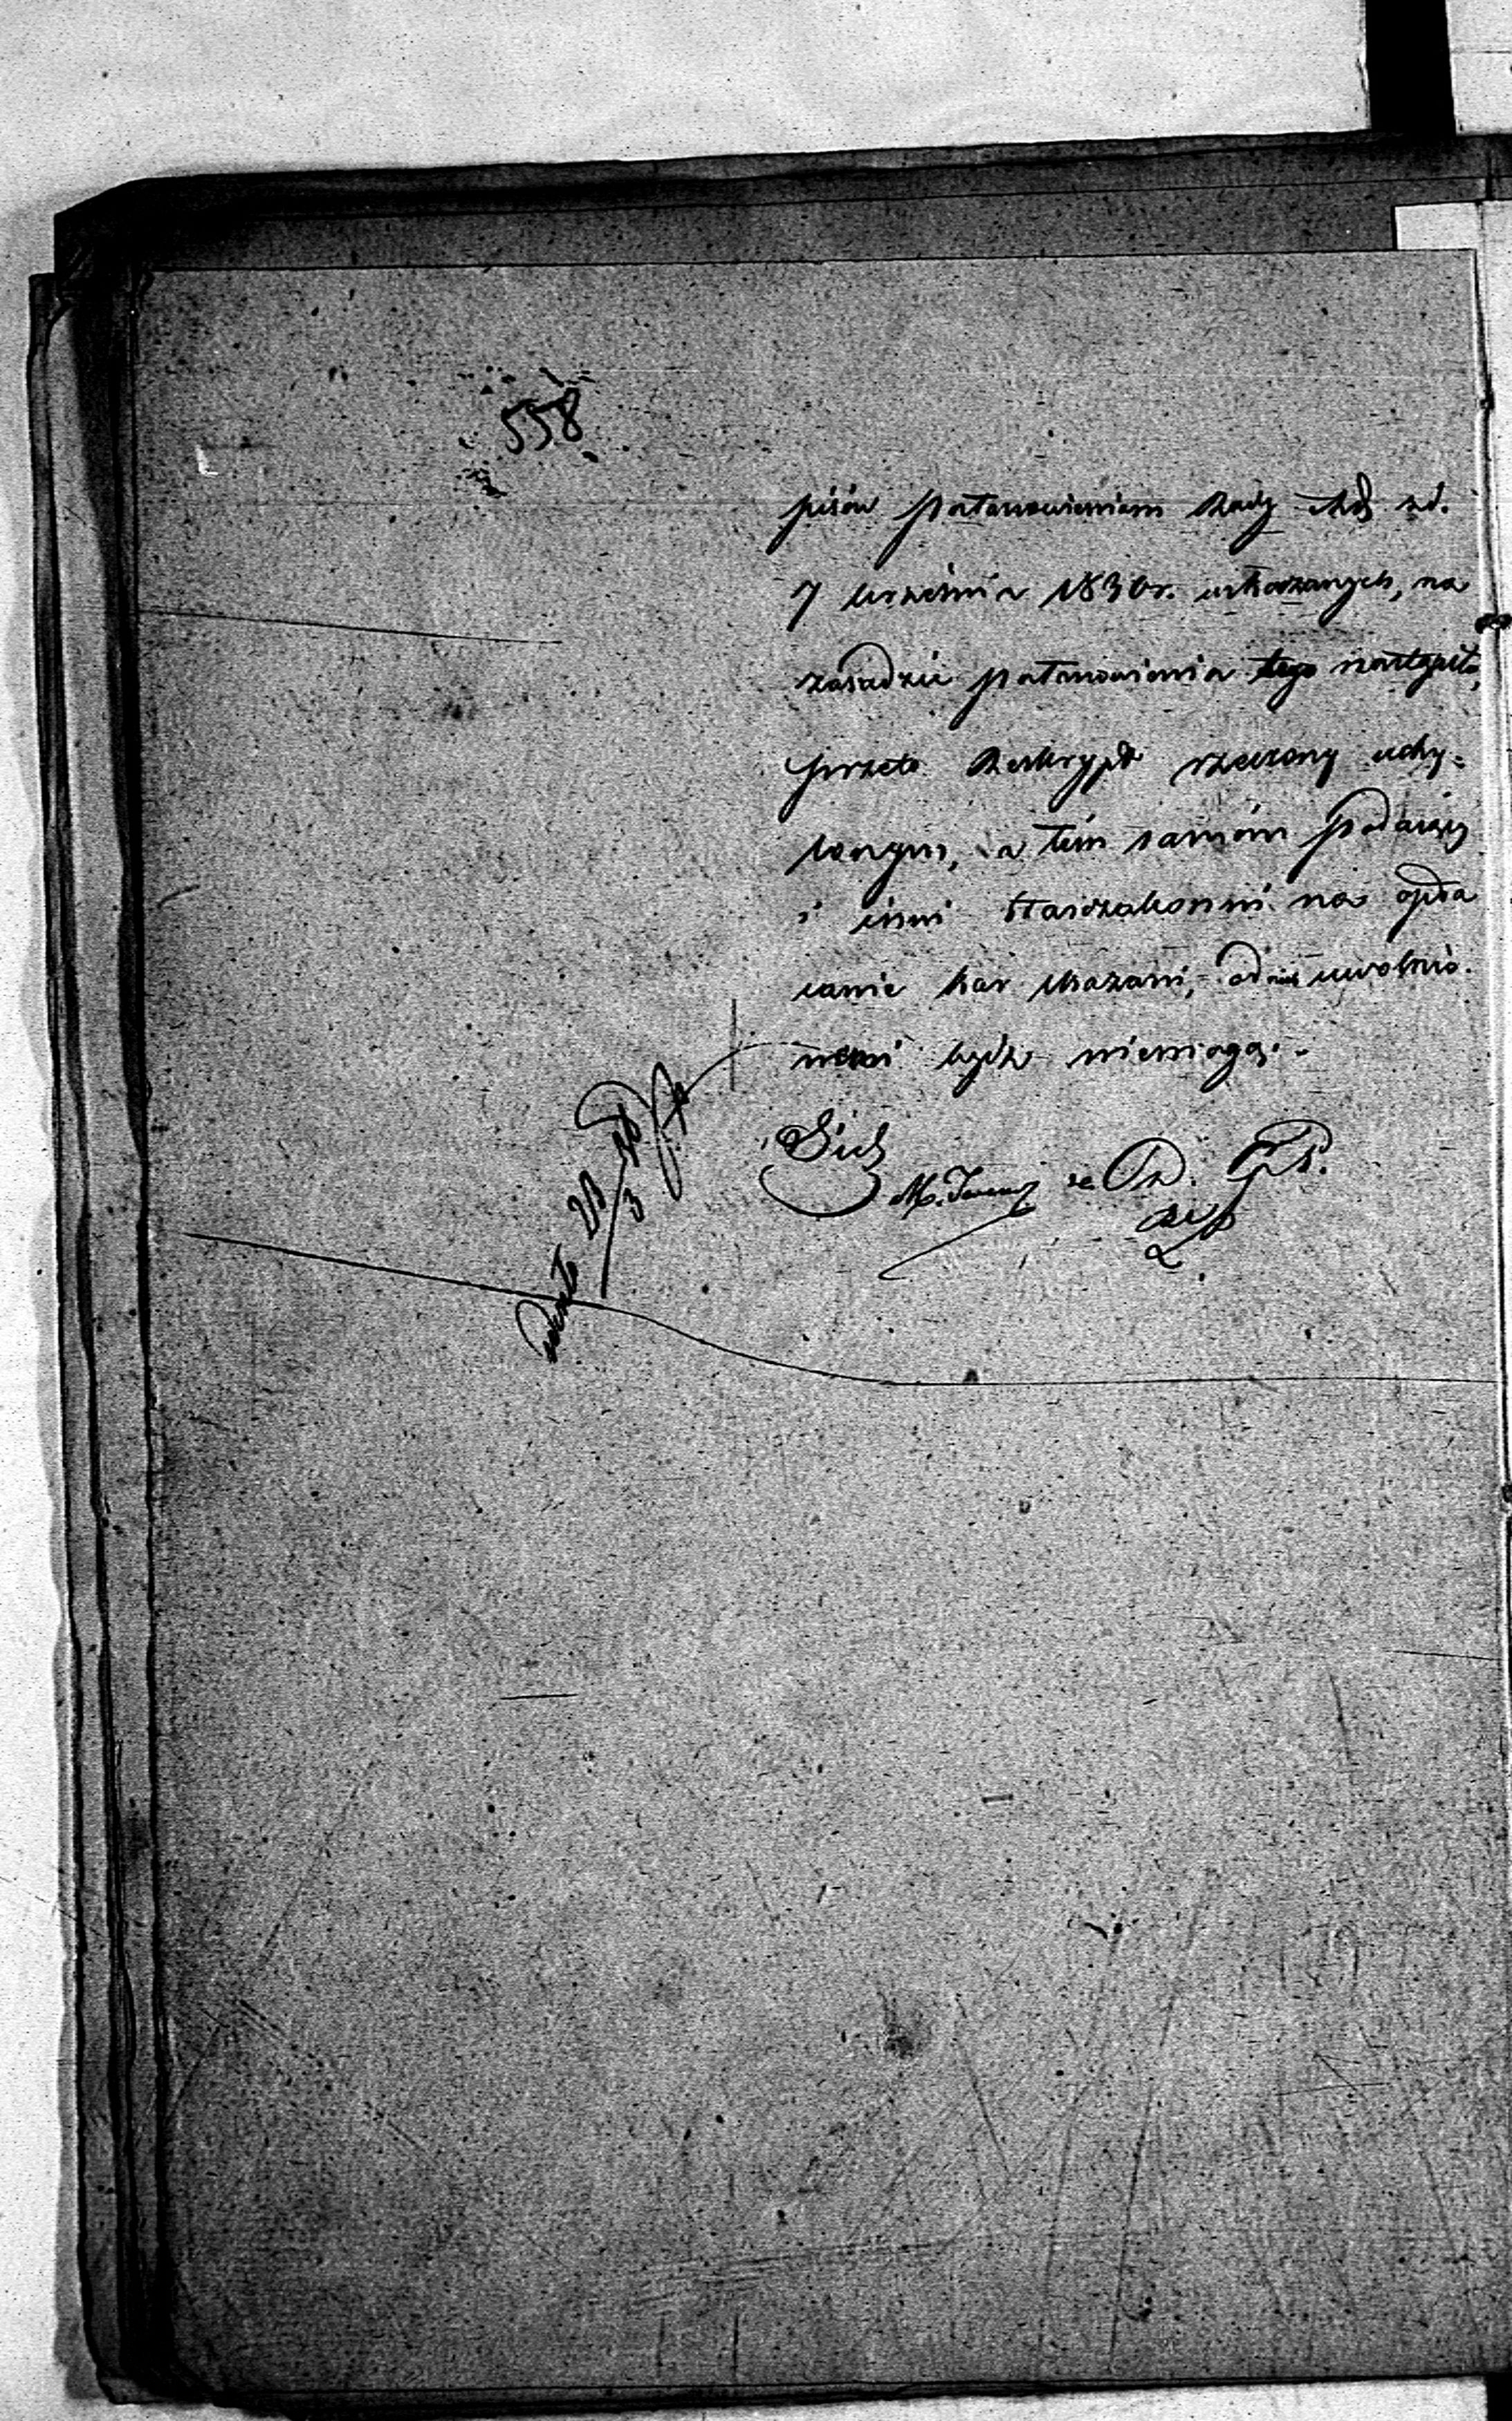 558
pisów postanowieniem Rady Adm. z d.
7 Września 1830 r. wskazanych, na
zasadzie postanowienia tego nastąpiło,
przeto Reskrypt rzeczony uchy-
lonym, a tém samém Podawcy
i inni Starozakonni na opła
canie kar skazani, od nich uwolnio-
nemi bydź niemogą.